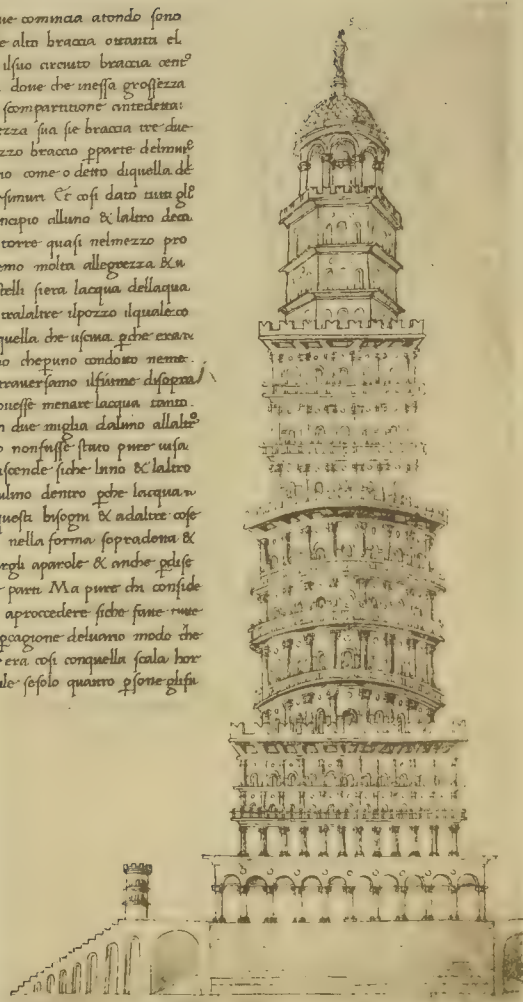 ue comincia atondo sono
e alto braccia ottanta el
ilsuo circuito braccia centº
doue che inessa grossezza
scompartitione antedetta:
ezza sua sie braccia tre due
zzo braccio pparte delmurº
no come o detto diquella de
simuri Et cosi dato tutti glı
ncipio alluno & laltro deca
torre quasi nelmezzo pro
emo molta allegrezza & u
telli siera lacqua dellaqua
tralaltre ilpozzo ilquale co
quella che usciua pche eran
no chepuno condotto neme
trauersamo ilfiume disopra
ouesse menare lacqua tanto
n due miglia daluno allaltrº
o nonfusse stato pure uisa
scende siche luno & laltro
ulino dentro pche lacqua n
uesti bisogni & adaltre cose
nella forma sopradetta &
rgli aparole & anche pdise
parti Ma pure chi conside
aproccedere siche fatte tutte
pcagione deluario modo che
era cosi conquella scala hor
le sesolo quatro psone glisu